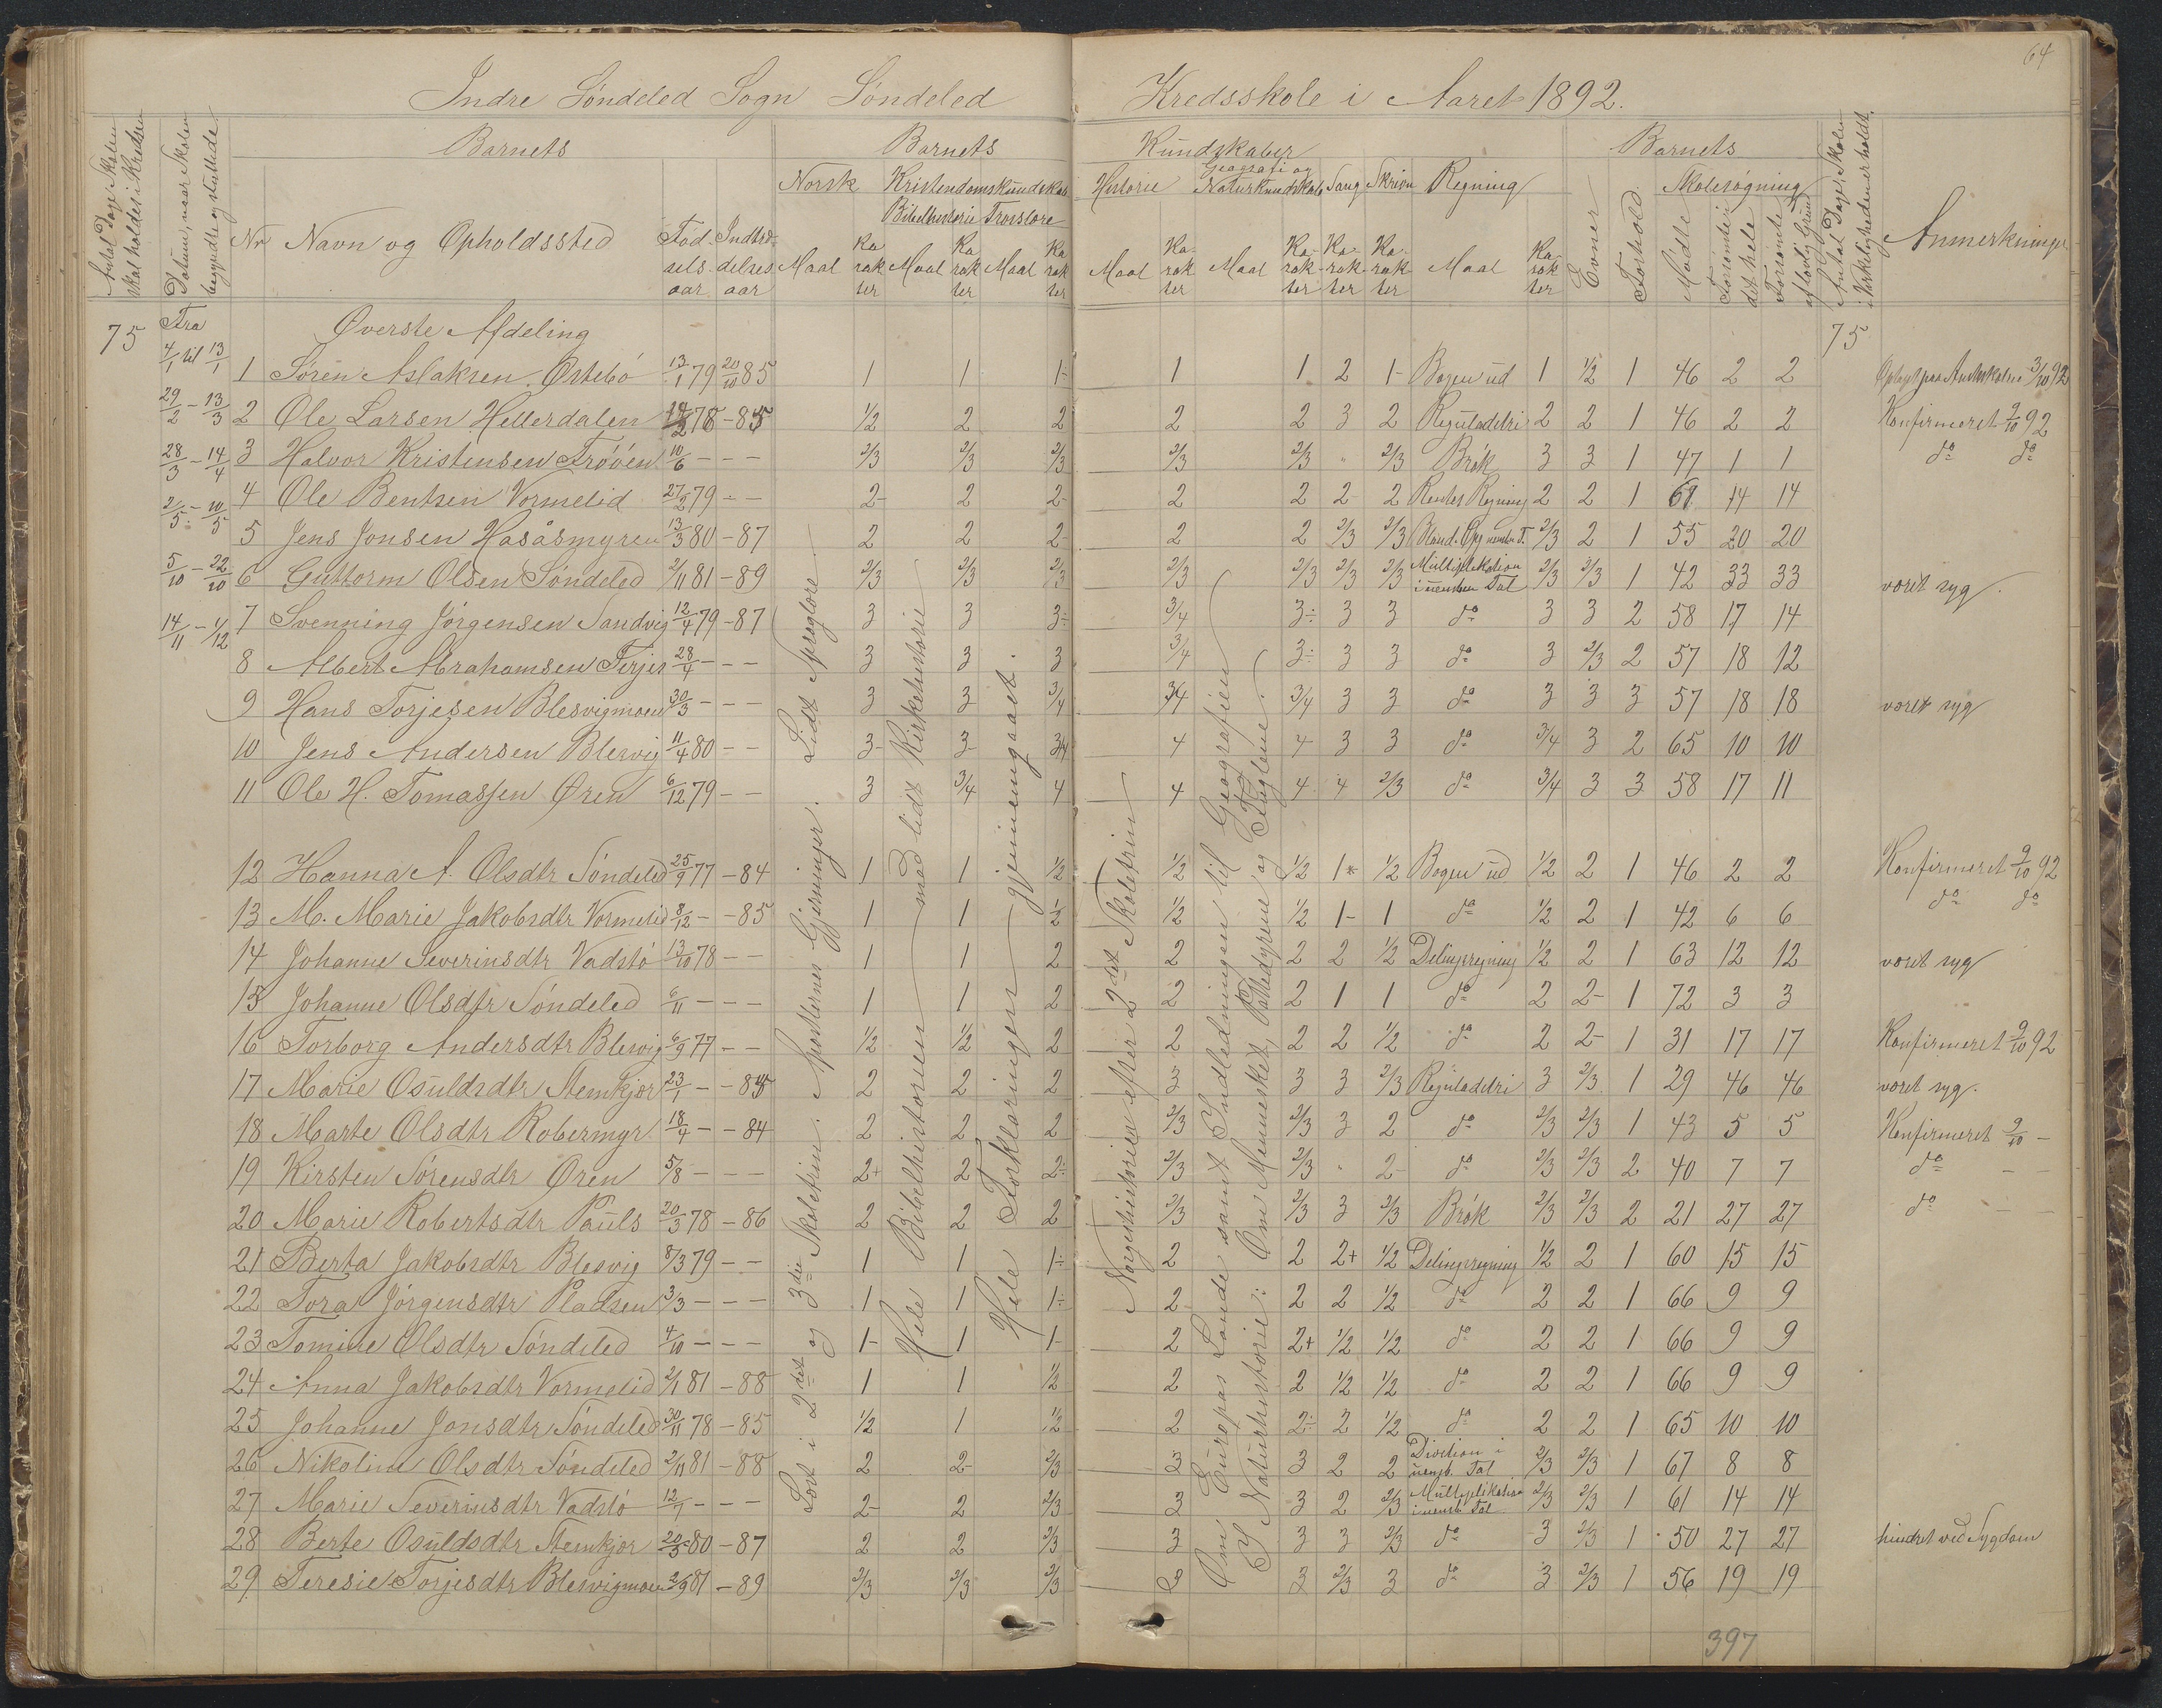 64
Indre Söndeled Sogn Söndeled Kredsskole i Aaret 1892.
Antal Dage, Skolen skal holdes i Kredsen
Datum, naar Skolen begyndte og sluttede
Barnets
Nr Navn og Opholdssted
Fødselsaar
Indtrædelsesaar
Barnets Kundskaber
Norsk Kristendomskundskab Historie Geografi og Naturkundskab Sang Skrivn Regning
Bibelhistorie Troeslære
Maal Karakter Maal Karakter Maal Karakter Maal Karakter Maal Karakter Karakter Karakter Maal Karakter
Barnets
Evner Forhold
Skolesøgning
Mødte
Forsömte det hele
Forsömte af lovlig Grund
Antal Dage, Skolen i Virkeligheden er holdt.
Anmerkninger
75
Fra
4/1 til 13/1
29/2 – 13/3
28/3 – 14/4
2/5 – 10/5
5/10 – 22/10
14/11 – 1/12
Øverste Afdeling
75
1 Sören Aslaksen Östebö 13/1 79 20/10 85 1 1 1- 1 1 2 1- Bogen ud 1 1/2 1 46 2 2 Optaget paa Amtsskolen 3/10 92
2 Ole Larsen Hellerdalen 78 – 85 1/2 2 2 2 2 3 2 Reguladetri 2 2 1 46 2 2 Konfirmeret 9/10 92
3 Halvor Kristensen Tröóen 10/6 – – – 2/3 2/3 2/3 2/3 2/3 " 2/3 Brök 3 3 1 47 1 1 do do
4 Ole Bentsen Vormelid 27/2 79 – – 2- 2 2- 2 2 2- 2 Rentes Regning 2 2 1 61 14 14
5 Jens Jonsen Hasåsmyren 13/3 80 – 87 2 2 2- 2 2 2/3 2/3 2/3 2 1 55 20 20
6 Guttorm Olsen Söndeled 2/11 81 – 89 2/3 2/3 2/3 2/3 2/3 2/3 2/3 Multiplikation i uensben Tal 2/3 2/3 1 42 33 33 været syg.
7 Svenning Jörgensen Sandvig 12/4 79 – 87 3 3 3÷ 3/4 3÷ 3 3 do 3 3 2 58 17 14
8 Albert Abrahamsen Terjes 28/4 – – – 3 3 3 3/4 3÷ 3 3 do 3 2/3 2 57 18 12
9 Hans Torjesen Blesvigmoen 30/3 – – – 3 3- 3/4 3/4 3/4 3 3 do 3 3 3 57 18 18 været syg
10 Jens Andersen Blesvig 11/4 80 – – 3- 3- 3/4 4 4 3 3 do 3/4 3 2 65 10 10
11 Ole H. Tomassen Øren 6/12 79 – – 3 3/4 4 4 4 4 2/3 do 3/4 3 3 58 17 11
12 Hanna A. Olsdtr Söndeled 25/9 77 – 84 1 1 1/2 1/2 1/2 1* 1/2 Bogen ud 1/2 2 1 46 2 2 Konfirmeret 9/10 92
13 M. Marie Jakobsdtr Vormelid 8/12 – – 85 1 1 1/2 1/2 1/2 1- 1 do 1/2 2 1 42 6 6 do do
14 Johanne Severinsdtr Vadstö 13/10 78 – – 1 1 2 2 2 2 1/2 Delingsregning 1/2 2 1 63 12 12 været syg
15 Johanne Olsdtr Söndeled 6/11 – – – 1 1 2 2 2 1 1 do 2 2- 1 72 3 3
16 Torborg Andersdtr Blesvig 6/9 77 – – 1/2 1/2 2 2 2 2 1/2 do 2 2- 1 31 17 17 Konfirmeret 9/10 92
17 Marie Osuldsdtr Stemkjær 23/1 – – 85 2 2 2 3 3 3 2/3 Reguladetri 3 2/3 1 29 46 46 været syg.
18 Marte Olsdtr Robermyr 18/4 – – 84 2 2 2 2/3 2/3 3 2 do 2/3 2/3 1 43 5 5 Konfirmeret 9/10 –
19 Kirsten Sörensdtr Øren 5/8 – – – 2+ 2 2÷ 2/3 2/3 " 2- do 2/3 2/3 2 40 7 7 do – –
20 Marie Robertsdtr Pauls 20/3 78 – 86 2 2 2 2/3 2/3 3 2/3 Brök 2/3 2/3 2 21 27 27 do – –
21 Berta Jakobsdtr Blesvig 8/3 79 – – 1 1 1÷ 2 2 2+ 1/2 Delingsregning 1/2 2 1 60 15 15
22 Tora Jörgensdtr Pladsen 3/3 – – – 1 1 1÷ 2 2 2 1/2 do 2 2 1 66 9 9
23 Tomine Olsdtr Söndeled 4/10 – – – 1- 1 1- 2 2+ 1/2 1/2 do 2 2 1 66 9 9
24 Anna Jakobsdtr Vormelid 2/1 81 – 88 1 1 1/2 2 2 1/2 1/2 do 2 2 1 66 9 9
25 Johanne Jonsdtr Söndeled 30/11 78 – 85 1/2 1 1/2 2 2÷ 2 1/2 do 2 2 1 65 10 10
26 Nikoline Olsdtr Söndeled 2/11 81 – 88 2 2- 2/3 3 3 2 2 Division i uensb. Tal 2/3 2/3 1 67 8 8
27 Marie Severinsdtr Vadstö 12/7 – – – 2- 2 2/3 3 3 2 2/3 Multiplikation i uensb Tal 2/3 2/3 1 61 14 14
28 Berte Osuldsdtr Stemkjær 20/3 80 – 87 2 2 2/3 3 3 3 2/3 do 3 2/3 1 50 27 27 hindret ved Sygdom
29 Teresie Torjesdtr Blesvigmoen 2/9 81 – 89 2/3 2/3 2/3 3 3 2/3 3 do 3 2/3 1 56 19 19
Læst i 2det og 3die Skoletrin: Apostlernes Gjerninger. Lidt Sproglære.
Hele Bibelhistorien med lidt Kirkehistorie
Hele Forklaringen gjennemgaaet.
Norgeshistorie efter 2det Skoletrin
Om Europas Lande samt Indledningen til Geografien
Af Naturhistorie: Om Mennesket, Pattedyrene og Fuglene.
397